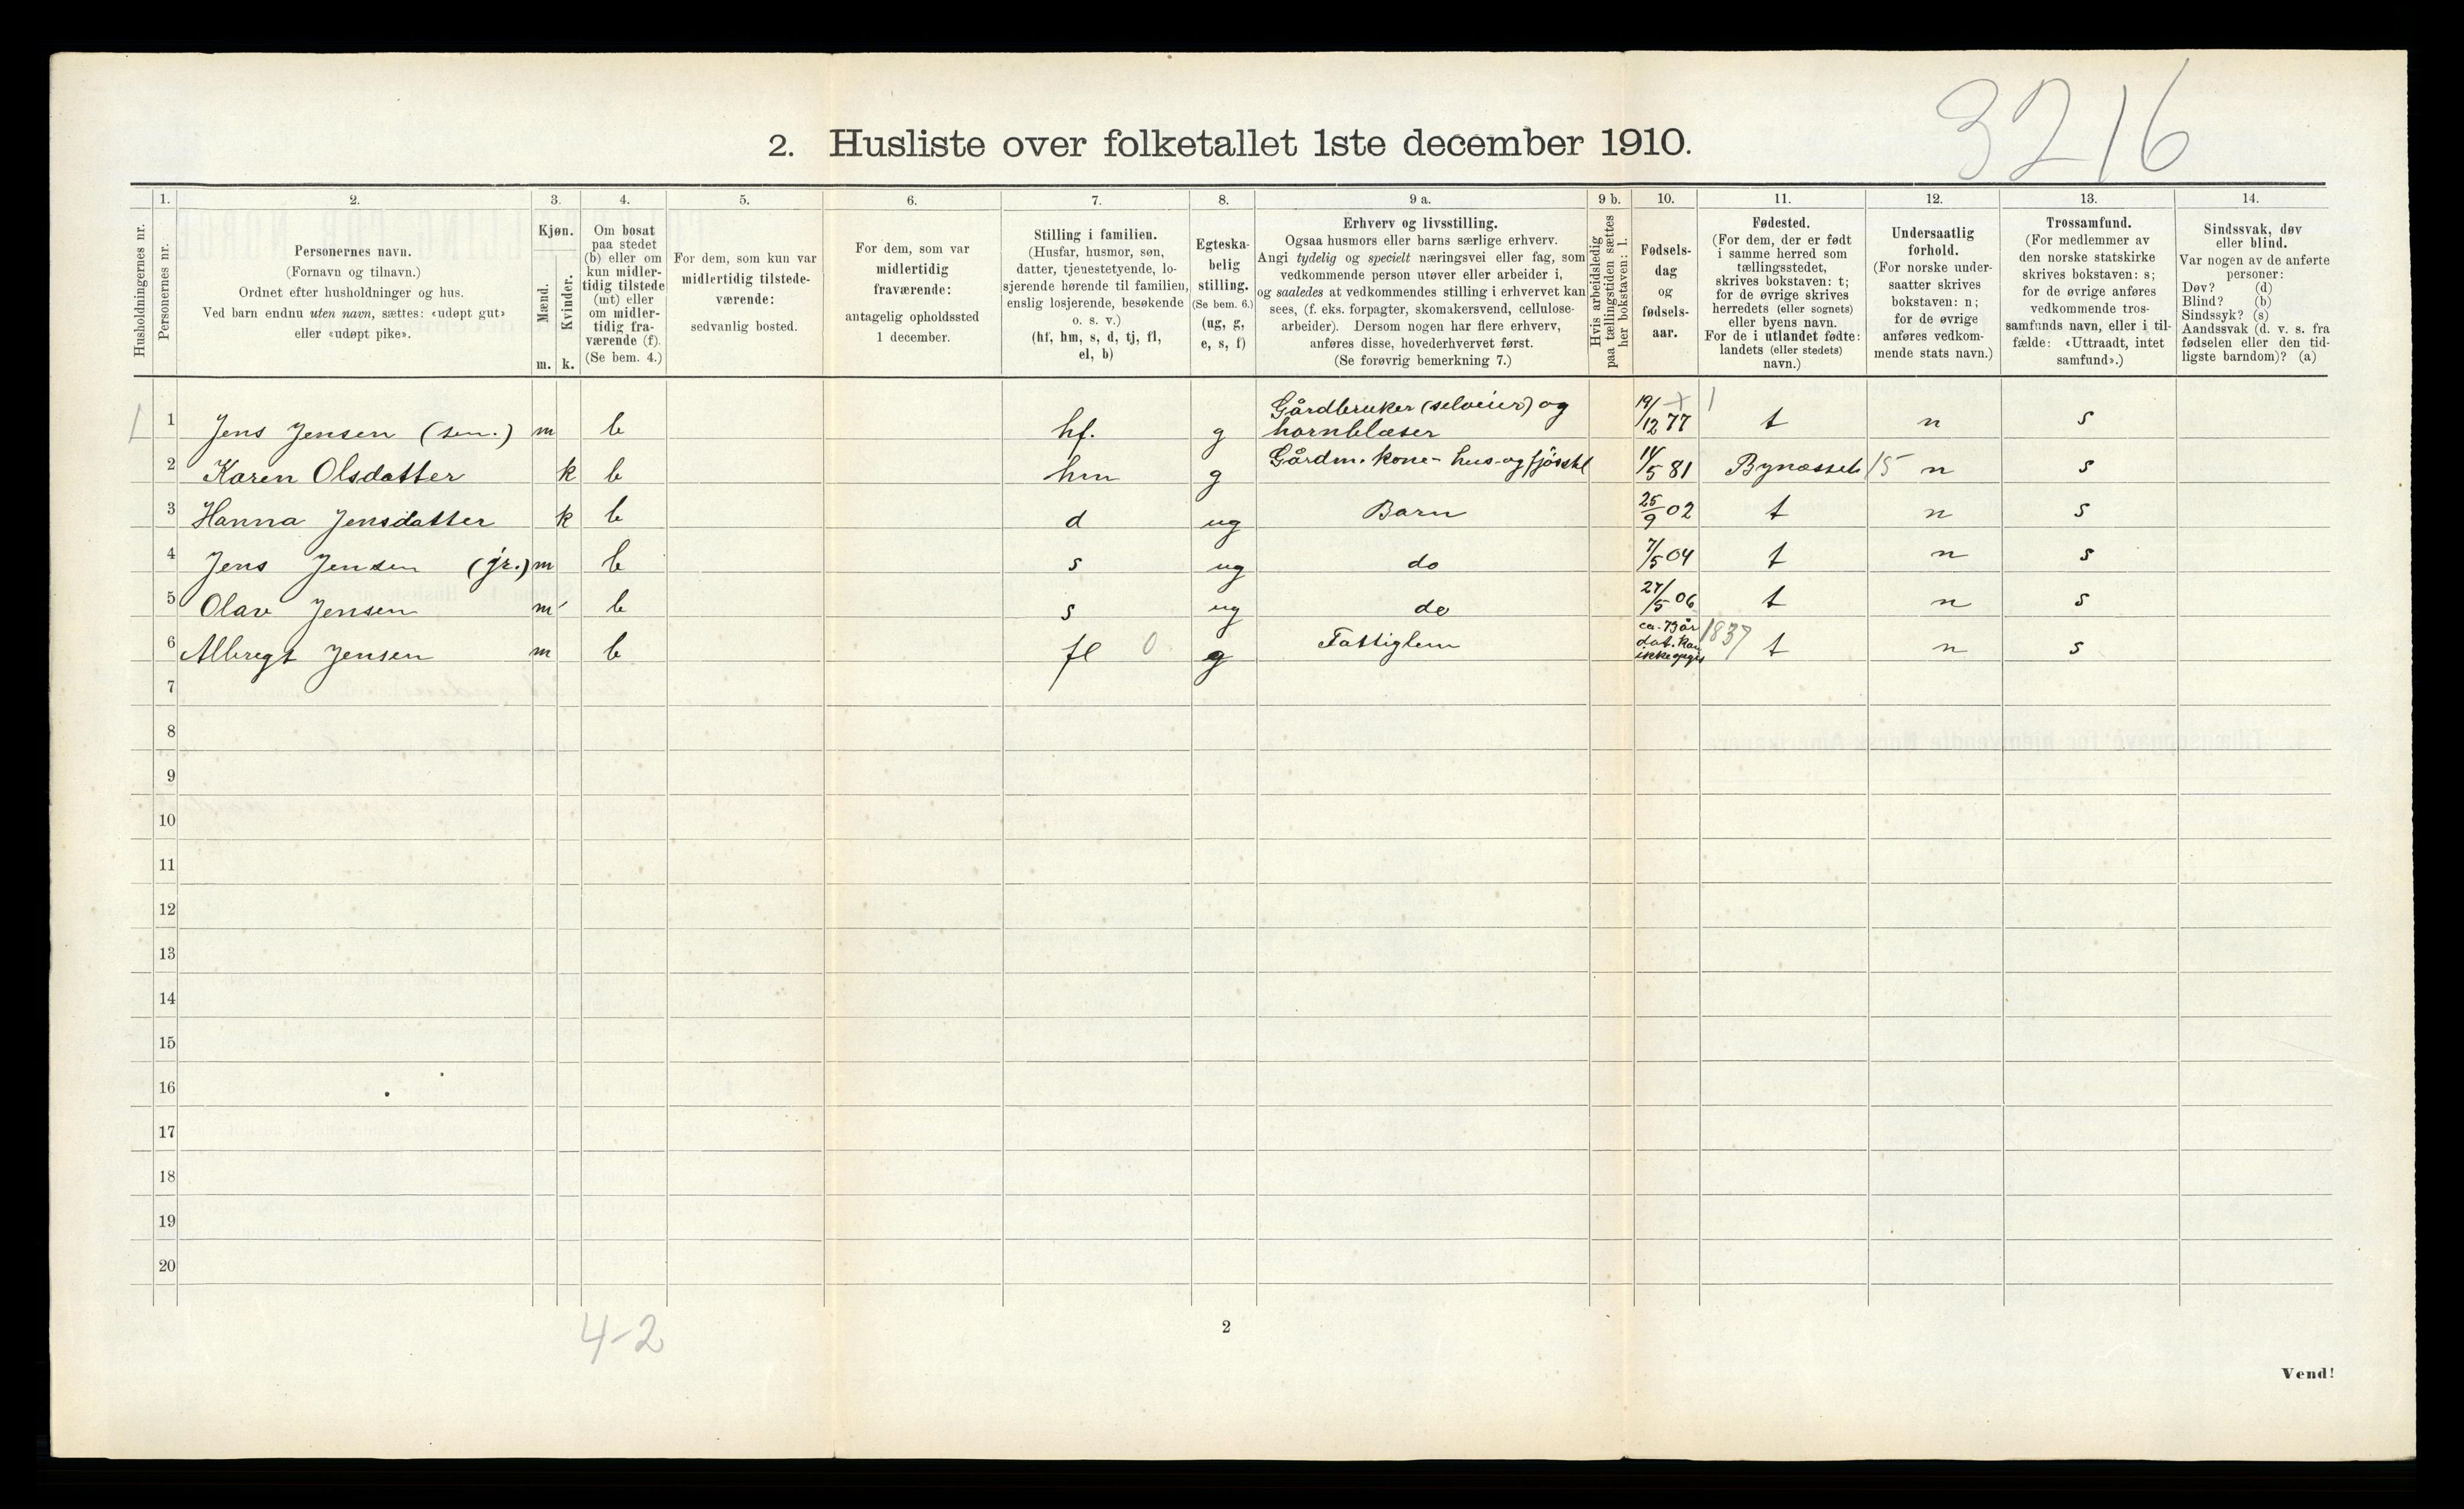 3216
2. Husliste over folketallet 1ste december 1910.
Husholdningernes nr.
1.
Personernes nr.
2.
Personernes navn.
(Fornavn og tilnavn.)
Ordnet efter husholdninger og hus.
Ved barn endnu uten navn, sættes: «udøpt gut»
eller «udøpt pike».
3.
Kjøn.
Mænd.
Kvinder.
m. k.
4.
Om bosat
paa stedet
(b) eller om
kun midler-
tidig tilstede
(mt) eller
om midler-
tidig fra-
værende (f).
(Se bem. 4.)
5.
For dem, som kun var
midlertidig tilstede-
værende:
sedvanlig bosted.
6.
For dem, som var
midlertidig
fraværende:
antagelig opholdssted
1 december.
7.
Stilling i familien.
(Husfar, husmor, søn,
datter, tjenestetyende, lo-
sjerende hørende til familien,
enslig losjerende, besøkende
o. s. v.)
(hf, hm, s, d, tj, fl,
el, b)
8.
Egteska-
belig
stilling.
(Se bem. 6.)
(ug, g,
e, s, f)
9 a.
Erhverv og livsstilling.
Ogsaa husmors eller barns særlige erhverv.
Angi tydelig og specielt næringsvei eller fag, som
vedkommende person utøver eller arbeider i,
og saaledes at vedkommendes stilling i erhvervet kan
sees, (f. eks. forpagter, skomakersvend, cellulose-
arbeider). Dersom nogen har flere erhverv,
anføres disse, hovederhvervet først.
(Se forøvrig bemerkning 7.)
9 b.
Hvis arbeidsledig
paa tællingstiden sættes
her bokstaven: l.
10.
Fødsels-
dag
og
fødsels-
aar.
11.
Fødested.
(For dem, der er født
i samme herred som
tællingsstedet,
skrives bokstaven: t;
for de øvrige skrives
herredets (eller sognets)
eller byens navn.
For de i utlandet fødte:
landets (eller stedets)
navn.)
12.
Undersaatlig
forhold.
(For norske under-
saatter skrives
bokstaven: n;
for de øvrige
anføres vedkom-
mende stats navn.)
13.
Trossamfund.
(For medlemmer av
den norske statskirke
skrives bokstaven: s;
for de øvrige anføres
vedkommende tros-
samfunds navn, eller i til-
fælde: «Uttraadt, intet
samfund».)
14.
Sindssvak, døv
eller blind.
Var nogen av de anførte
personer:
Døv? (d)
Blind? (b)
Sindssyk? (s)
Aandssvak (d. v. s. fra
fødselen eller den tid-
ligste barndom)? (a)
1 1 Jens Jensen (sen.) m b hf. g Gårdbruker (selveier) og hornblæser 19/12 77 t n s
2 Karen Olsdatter k b hm g Gårdm. kone - hus- og fjösstel 5 81 Bynæsset 15 n s
3 Hanna Jensdatter k b d ug Barn 25/9 02 t n s
4 Jens Jensen (jr.) m b s ug do 7/5 04 t n s
5 Olav Jensen m b s ug do 27/5 06 t n s
6 Albregt Jensen m b fl 0 g Fattiglem ca. 73 år dat. kan ikke opgis 1837 t n s
7
8
9
10
11
12
13
14
15
16
17
18
19
20
4-2
2
Vend!